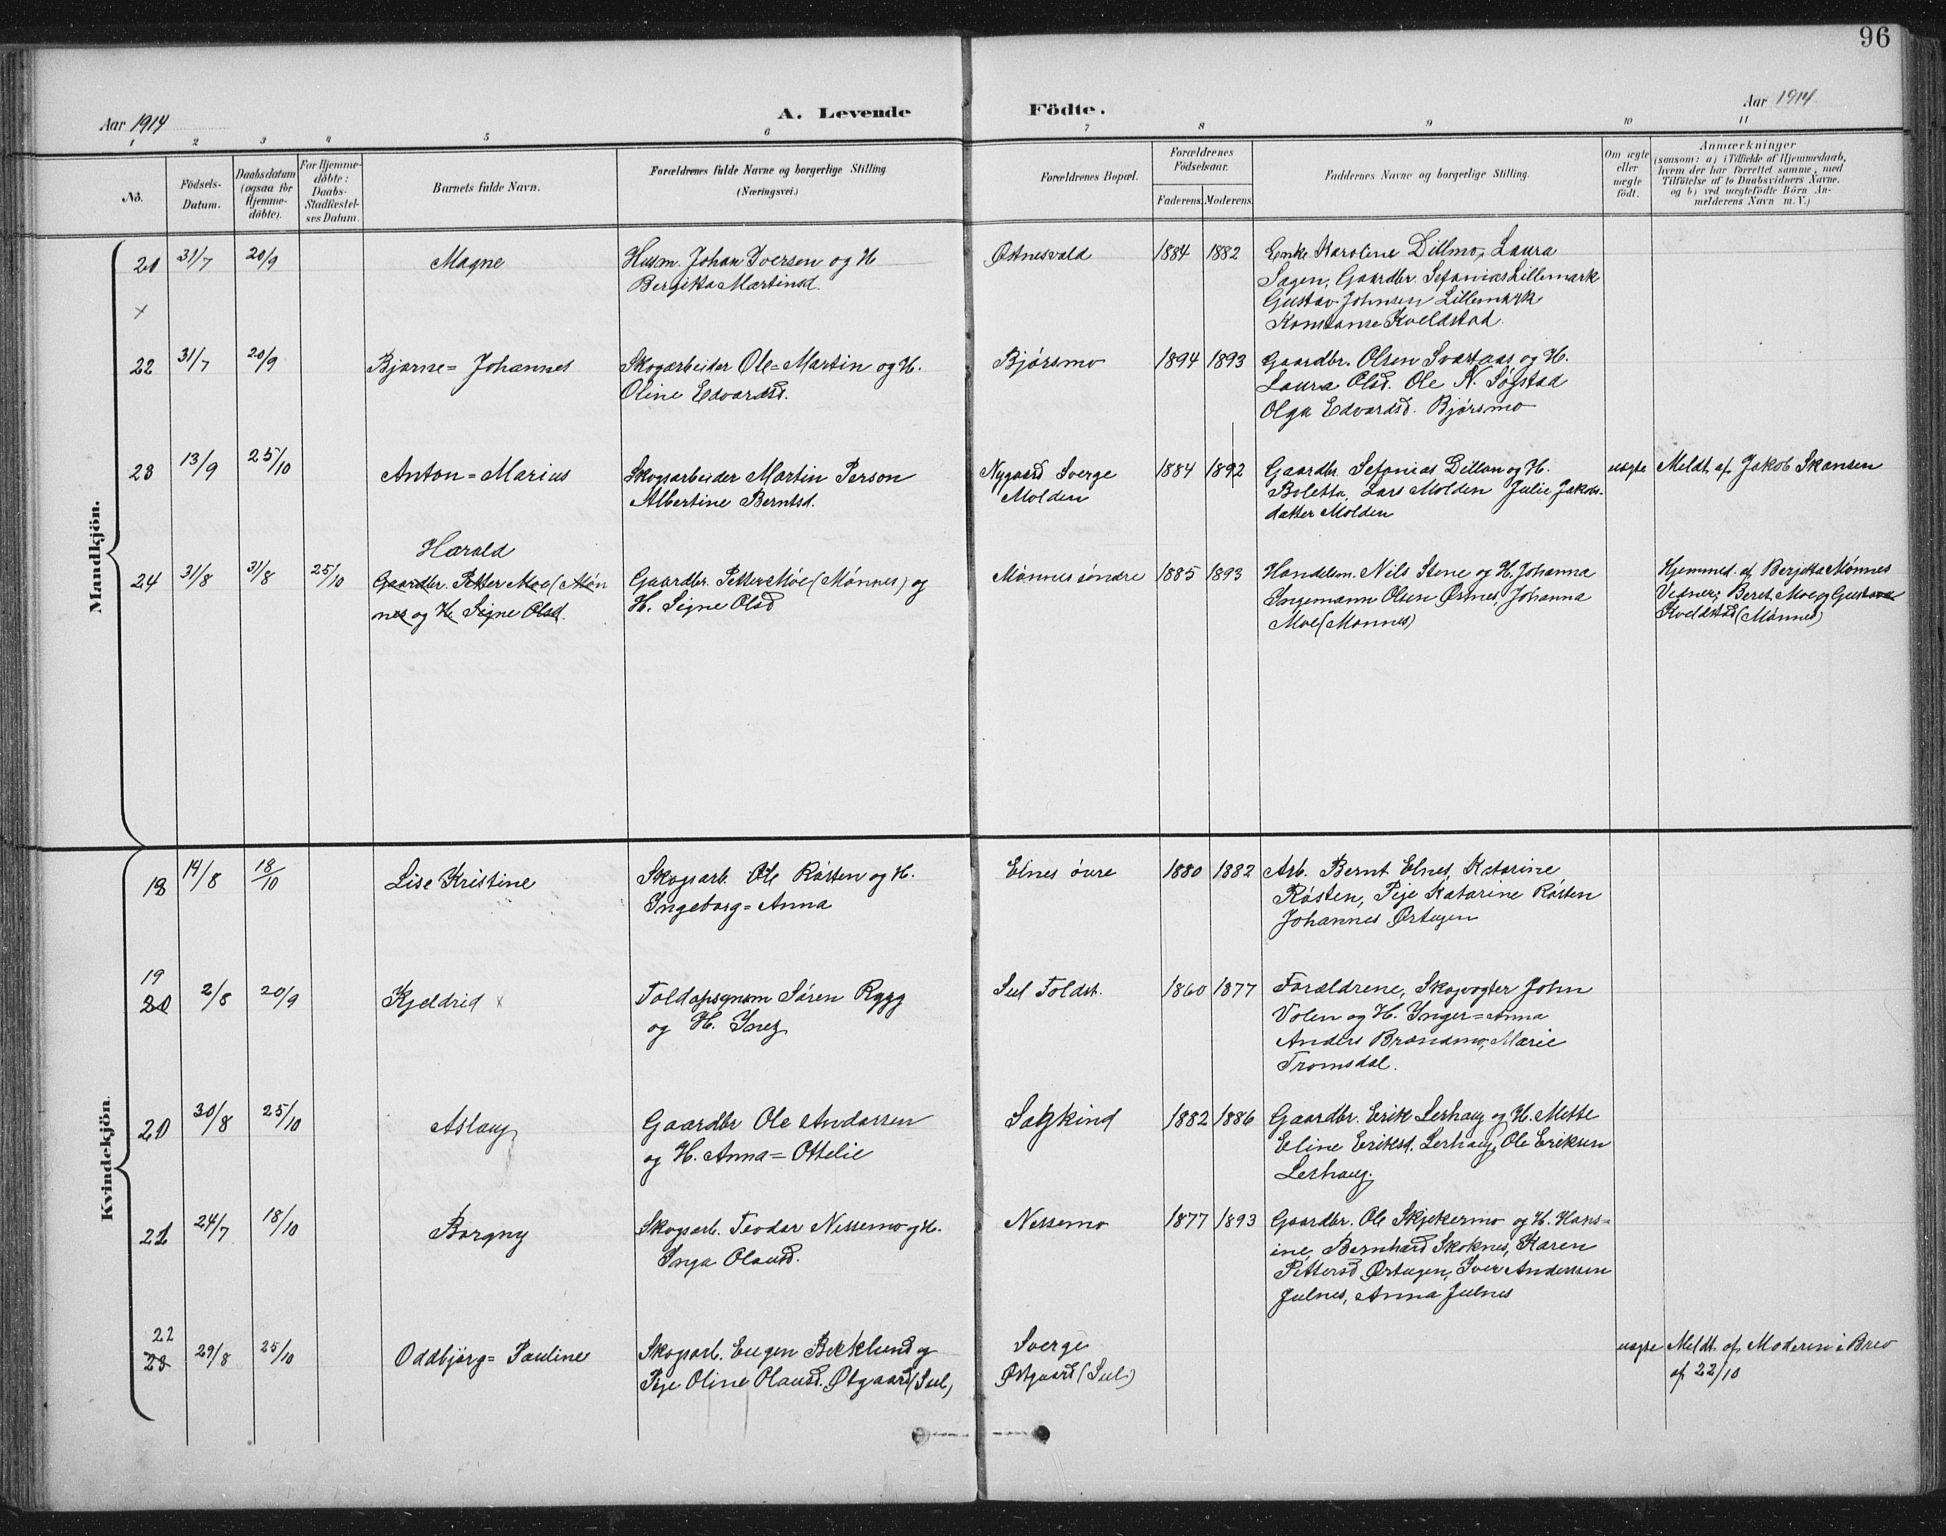 96
Aar 1914
A. Levende
Fødte.
Aar 1914
1 2 3 4 5 6 7 8 9 10 11
No.
Fødsels-
Datum.
Daabsdatum
(ogsaa for
Hjemme-
døbte).
For Hjemme-
døbte:
Daabs-
Stadfæstel-
ses Datum.
Barnets fulde Navn.
Forældrenes fulde Navne og borgerlige Stilling
(Næringsvei.)
Forældrenes Bopæl.
Forældrenes
Fødselsaar.
Faderens. Moderens.
Faddernes Navne og borgerlige Stilling.
Om ægte
eller
uægte
født.
Anmærkninger
(saasom: a) i Tilfælde af Hjemmedaab,
hvem der har forrettet samme, med
Tilføielse af to Daabsvidners Navne,
og b) ved uægtefødte Børn An-
melderens Navn m. V.)
Mandkjön.
21 31/7 20/9 Magne Husm. Johan Iversen og H Østnesvald 1884 1882 Enke Karoline Dillmo, Laura
Bergitta Martinsd. Sagen, Gaardbr. Sefanias Lillemark
x Gustav Johnsen Lillemark
Konstanse Kveldstad.
22 31/7 20/9 Bjarne= Johannes Skogarbeider Ole=Martin og H. Bjørsmo 1894 1893 Gaardbr. Olsen Svartaas og H.
Oline Edvardsd. Laura Olsd. Ole N. Søgstad
Olga Edvardsd. Bjørsmo
23 13/9 25/10 Anton=Marius Skogsarbeider Martin Person Nygaard Sverge 1884 1892 Gaardbr. Sefanias Dillan og H. uægte Meldt af Jakob Skansen
Albertine Berntsd. Molden Boletta, Lars Molden Julie Jakobs-
datter Molden
Harald
24 31/8 31/8 25/10 Gaardbr. Petter Moe (Møn Gaardbr. Petter Moe (Mønnes) og Mønnes søndre 1885 1893 Handelsm. Nils Stene og H. Johanna Hjemmed. af Berjitta Mønnes
nes og H. Signe Olsd. H. Signe Olsd Ingemann Olsen Østnes, Johanna Vidner; Beret Moe og Gustava
Moe (Mønnes) Kveldstad (Mønnes)
Kvindekjön.
18 14/8 18/10 Lise Kristine Skogsarb. Ole Røsten og H. Elnes øvre 1880 1882 Arb. Bernt Elnes, Katarine
Ingeborg=Anna Røsten, Pige Katarine Røsten
Johannes Ørtugen
19
20 2/8 20/9 Kjeldrid x Toldopsynsm Søren Rygg Sul Toldst. 1860 1877 Forældrene, Skogvogter John
og H. Inez Volen og H. Inger=Anna
Anders Brandmo, Marie
Tromsdal.
20 30/8 25/10 Aslaug Gaardbr Ole Andersen 1882 1886 Gaardbr. Erik Lerhaug og H. Mette
og H. Anna=Ottelie Eline Eriksd. Lerhaug, Ole Eriksen
Lerhaug.
21 24/7 18/10 Borgny Skogsarb. Teodor Nessemo og H. Nessemo 1877 1893 Gaardbr. Ole Skjekermo og H. Hans=
Inga Olausd. ine, Bernhard Skoknes, Karen
Pettersd. Ørtugen, Iver Anderssen
Julnes, Anna Julnes
22
23 29/8 25/10 Oddbjørg= Pauline Skogsarb. Eugen Bekklund og Sverge uægte Meldt af Moderen i Brev
Pige Oline Olausd. Østgaard (Sul) Østgaard (Sul.) af 22/10